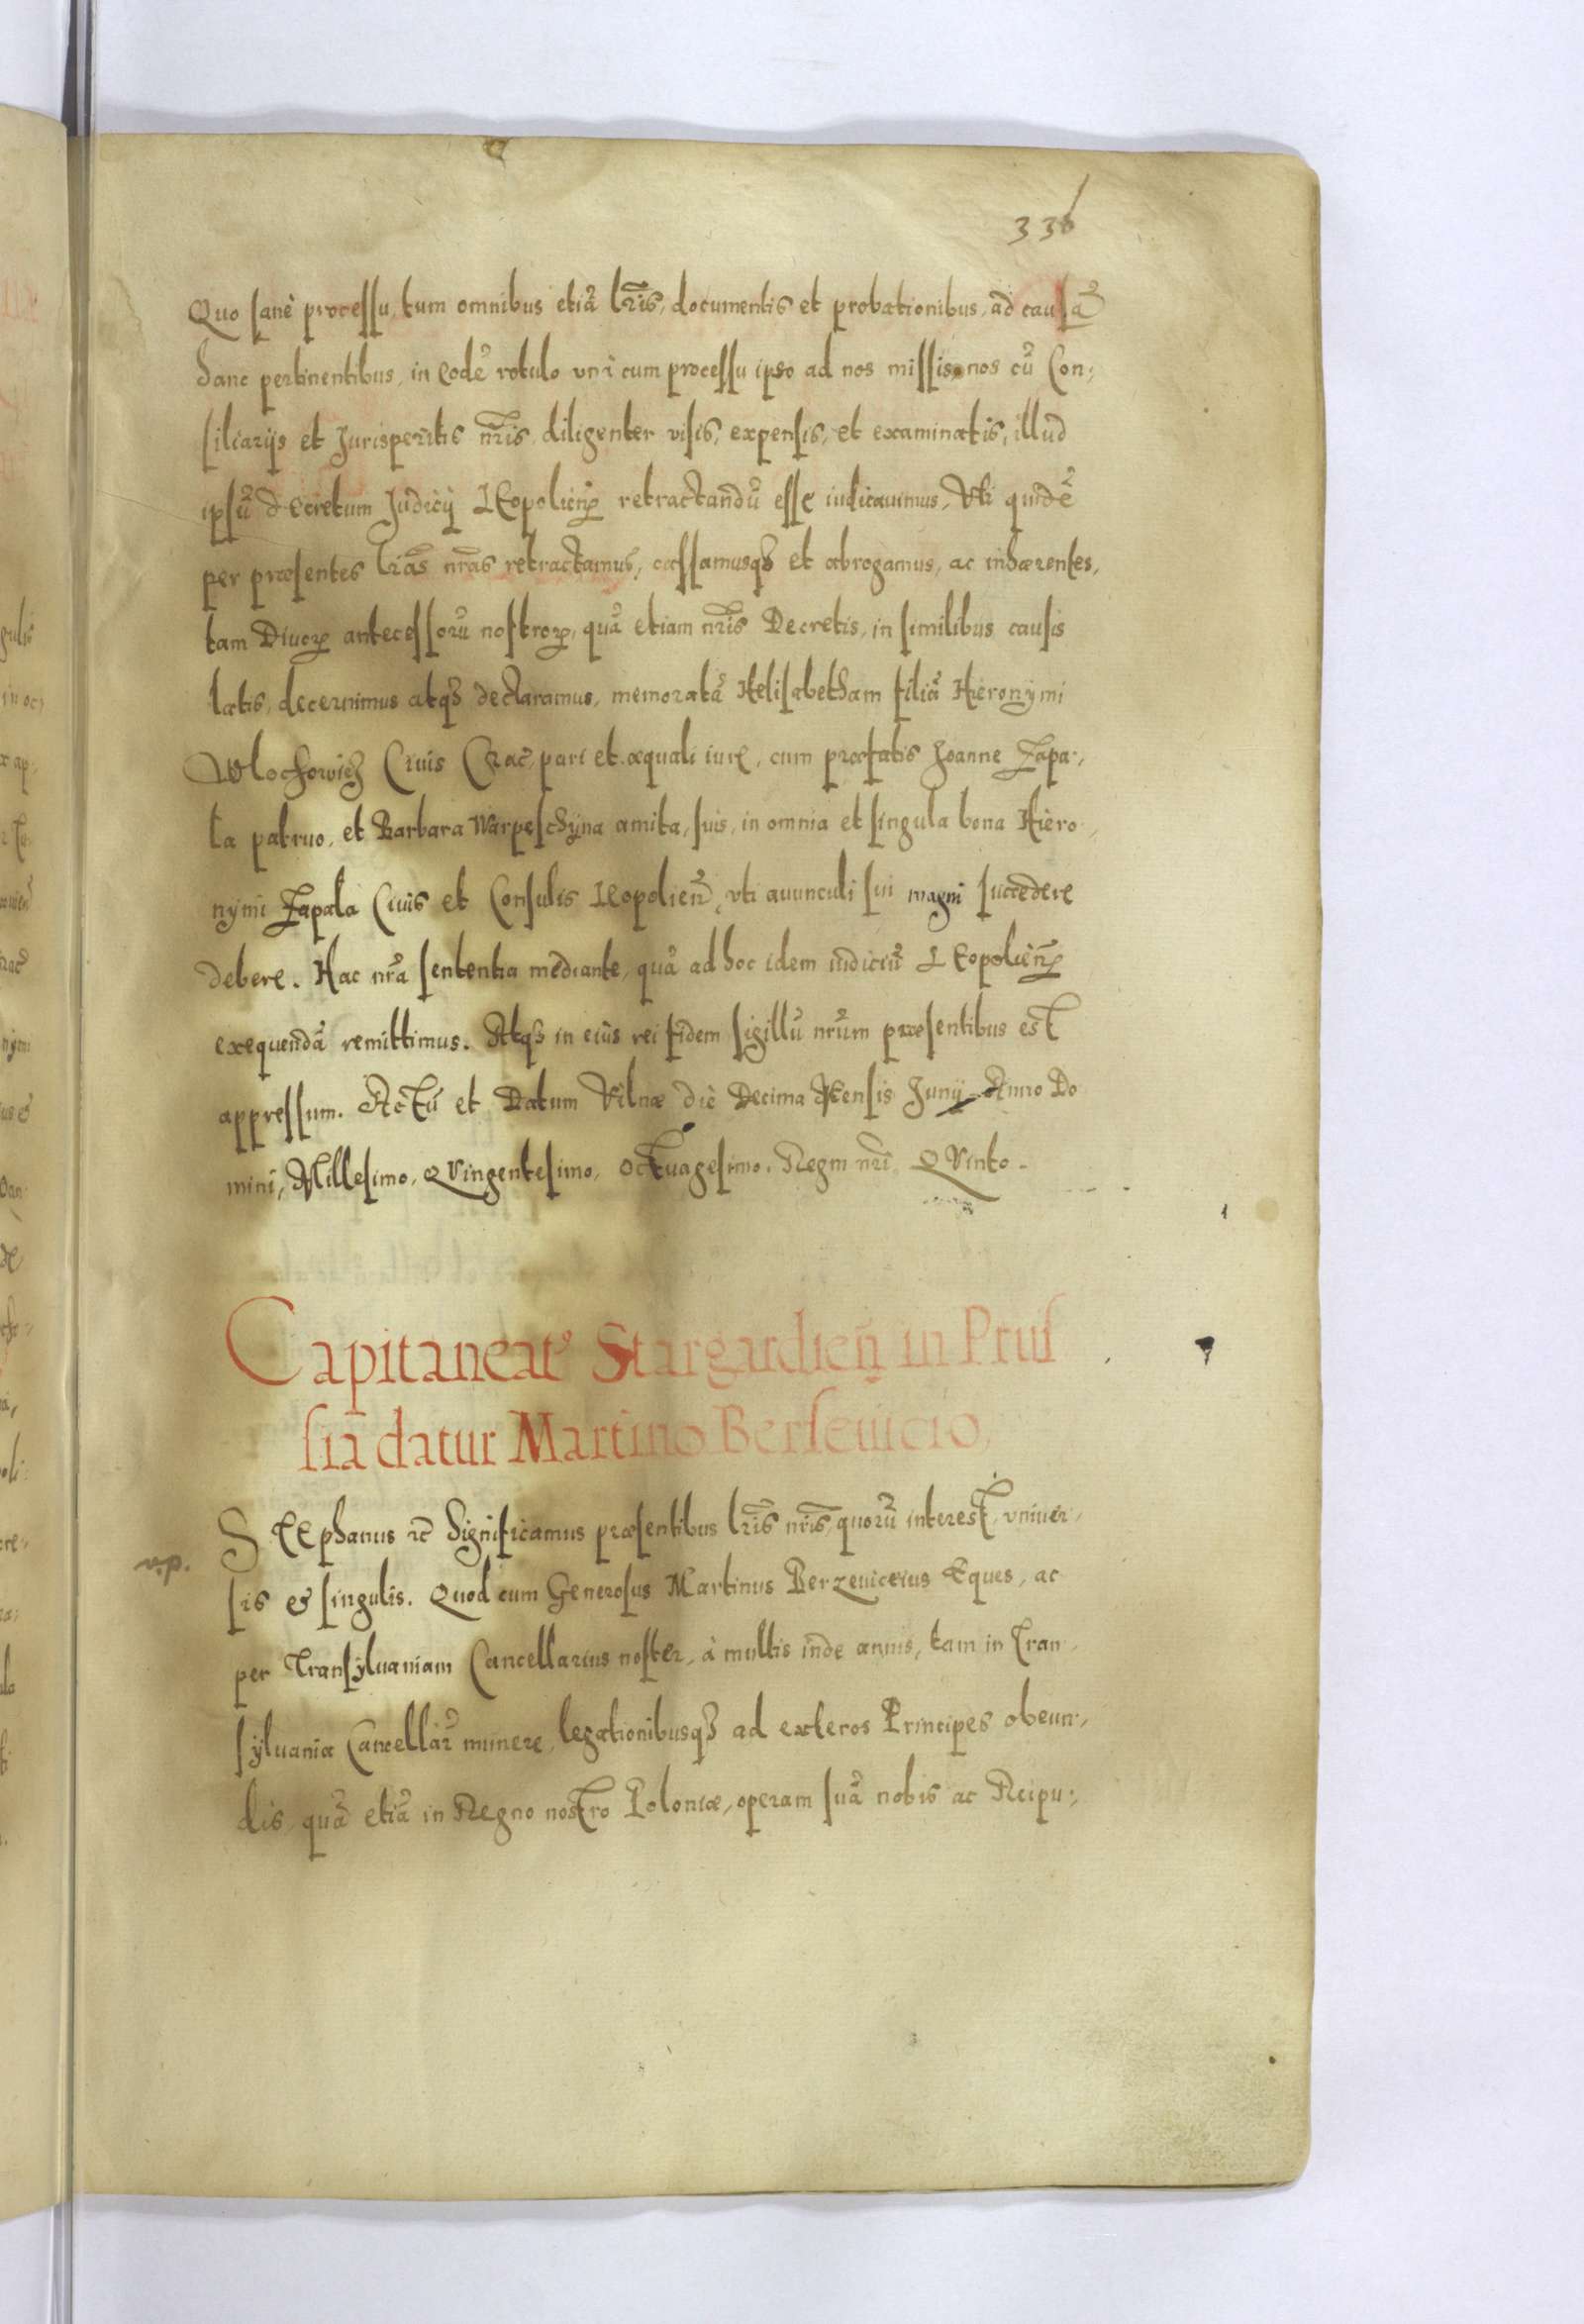 336
Quo sanè processu, tum omnibus etiã lr̃is, documentis et probationibus, ad causã
hanc pertinentibus, in eodẽ rotulo vnà cum processu ipso ad nos missis, nos cũ Con:
siliarijs et Jurisperitis nr̃is, diligenter visis, expensis, et examinatis, illud
ipsũ decretum Judicij Leopolien̄ retractandũ esse iudicauimus, Vti quidẽ
per præsentes lr̃as nr̃as retractamus, cassamusq3 et abrogamus, ac inhærentes,
tam Diuoꝝ antecessorũ nostroꝝ, quã etiam nr̃is Decretis, in similibus causis
latis, decernimus atq3 declaramus, memoratã Helisabetham filiã Hieronymi
Wlochowicz Ciuis Crac̃, pari et æquali iure, cum præfatis Joanne Zapa:
la patruo, et Barbara Warpeschyna amita, suis, in omnia et singula bona Hiero
nymi Zapala Ciuis et Consulis Leopolien̄, vti auunculi sui magni succedere
debere. Hac nr̃a sententia mediante, quã ad hoc idem iudiciũ Leopolien̄
exequendã remittimus. Atq3 in eius rei fidem sigillũ nr̃um præsentibus est
appressum. Actũ et Datum Vilnæ die Decima Mensis Junij Anno Do
mini, Millesimo, Quingentesimo, Octuagesimo, Regni nr̃i Quinto.
Capitaneat9 Stargardien̄ in Prus
siã datur Martino Berseuicio,
Stephanus ꝛc̃ Significamus præsentibus lr̃is nr̃is, quorũ interest, vniuer:
v.p.
sis et singulis. Quod cum Generosus Martinus Berzeuiceius Eques, ac
per Transyluaniam Cancellarius noster, à multis inde annis, tam in Tran
syluania Cancellar̃ munere, legationibusq3 ad exteros Principes obeun:
dis, quã etiã in Regno nostro Poloniæ, operam suã nobis ac Reipu: